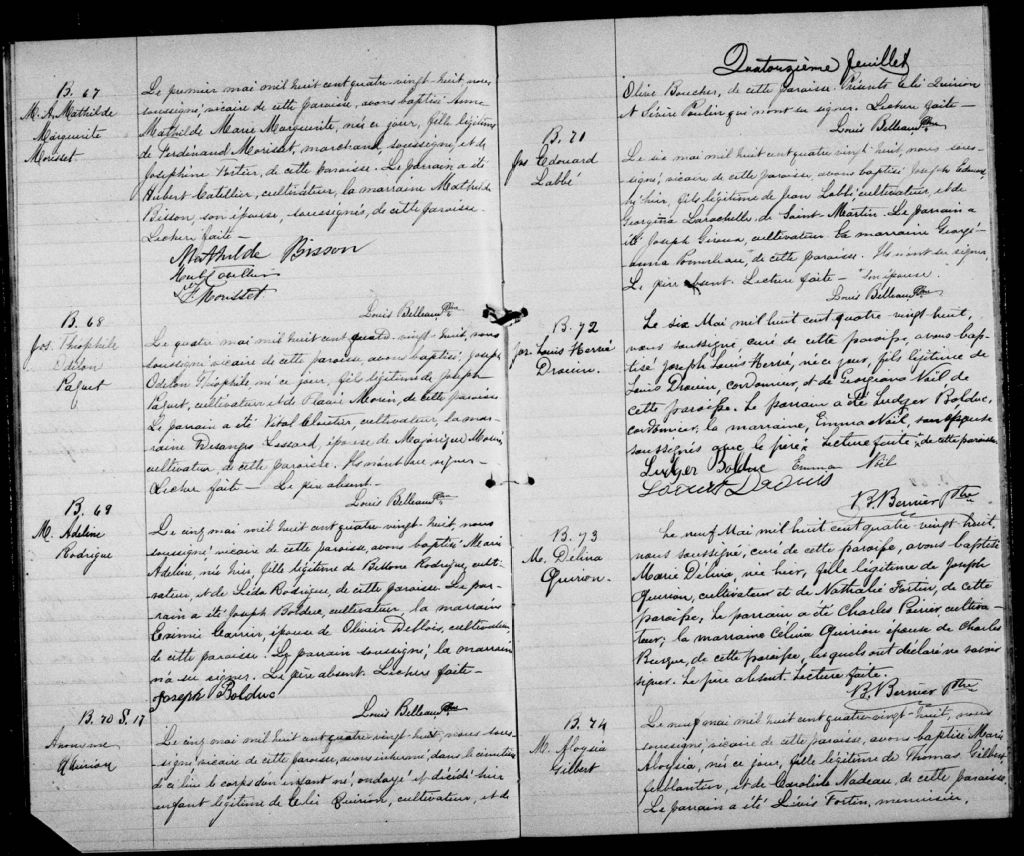 B. 67
M. A. Mathilde
Marguerite
Morisset
Le premier mai mil huit cent quatre-vingt-huit, nous
soussigné, vicaire de cette paroisse, avons baptisé Anna
Mathilde Marie Marguerite, née ce jour, fille légitime
de Ferdinand Morisset, marchand, soussigné, et de
Josephine Fortier, de cette paroisse. Le parrain a été
Hubert Catellier, cultivateur, la marraine Mathilde
Bisson, son épouse, soussignés, de cette paroisse.
Lecture faite —
Mathilde Bisson
F Morisset
Louis Belleau Ptre
B. 68
Jos. Théophile
Odelon
Paquet
Le quatre mai mil huit cent quatre-vingt-huit, nous
soussigné, vicaire de cette paroisse avons baptisé Joseph
Odelon Théophile, né ce jour, fils légitime de Joseph
Paquet, cultivateur et de Morin, de cette paroisse
Le parrain a été Vital Cloutier, cultivateur, la mar-
raine Desanges Lessard, épouse de Majorique Morin,
cultivateur de cette paroisse. Ils n'ont su signer —
Lecture faite — Le père absent —
Louis Belleau Ptre
B. 69
M. Adeline
Rodrigue
Le cinq mai mil huit cent quatre-vingt-huit, nous
soussigné, vicaire de cette paroisse, avons baptisé Marie
Adeline, née hier, fille légitime de Rodrigue, culti-
vateur, et de Léda Rodrigue, de cette paroisse. Le par-
rain a été Joseph Bolduc, cultivateur, la marraine
épouse de Olivier Deblois, cultivateur,
de cette paroisse. Le parrain soussigné, la marraine
n'a su signer. Le père absent. Lecture faite —
Joseph Bolduc
Louis Belleau Ptre
B. 70 S. 17
Anonyme
Quirion
Le cinq mai mil huit cent quatre-vingt-huit, nous sous-
signé, vicaire de cette paroisse, avons inhumé dans le cimetière
de ce lieu le corps d'un enfant né, ondoyé et décédé hier
enfant légitime de Elie Quirion, cultivateur, et de
Quatorzième feuillet
Olive Boucher, de cette paroisse. Présents Elie Quirion
et Poulin qui n'ont su signer. Lecture faite —
Louis Belleau Ptre
B. 71
Jos Edouard
Labbé
Le six mai mil huit cent quatre-vingt-huit, nous sous-
signé, vicaire de cette paroisse, avons baptisé Joseph Edouard
né hier, fils légitime de Jean Labbé cultivateur, et de
Georgina Larochelle de Saint-Martin. Le parrain a
été Joseph Giroux, cultivateur la marraine Georgi-
anna Pomerleau, de cette paroisse. Ils n'ont su signer
Le père absent. Lecture faite — son épouse.
Louis Belleau Ptre
B. 72
Jos. Louis Hervé
Drouin.
Le six Mai mil huit cent quatre vingt huit,
nous soussigné curé de cette paroisse, avons bap-
tisé Joseph Louis Hervé, né ce jour, fils légitime de
Louis Drouin, cordonnier, et de Georgiana Noël de
cette paroisse. Le parrain a été Ludger Bolduc,
cordonnier, la marraine, Emma Noël, son épouse
soussignés avec le père Lecture faite de cette paroisse
Ludger Bolduc Emma Noël
Louis Drouin
B. Bernier Ptre
B. 73
M. Délina
Quirion.
Le neuf Mai mil huit cent quatre vingt huit,
nous soussigné, curé de cette paroisse, avons baptisé
Marie Délina, née hier, fille légitime de Joseph
Quirion, cultivateur et de Nathalie Fortin, de cette
paroisse, le parrain a été Charles Poirier cultiva-
teur, la marraine Célina Quirion épouse de Charles
de cette paroisse, lesquels ont déclaré ne savoir
signer. Le père absent. Lecture faite.
B. Bernier Ptre
B. 74
M. Aloysia
Gilbert
Le neuf mai mil huit cent quatre-vingt-huit, nous
soussigné, vicaire de cette paroisse, avons baptisé Marie
Aloysia, née ce jour, fille légitime de Thomas Gilbert
ferblantier, et de Caroline Nadeau, de cette paroisse
Le parrain a été Fortin, menuisier,